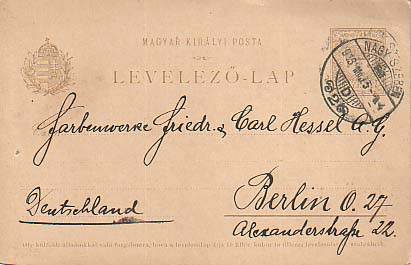 MAGYAR KIRÁLYI POSTA
LEVELEZŐ-LAP
NAGY-SZEBEN
Farbenwerke Friedr. & Carl Hessel A.G.
Berlin O. 27
Deutschland
Alexanderstraße 22.